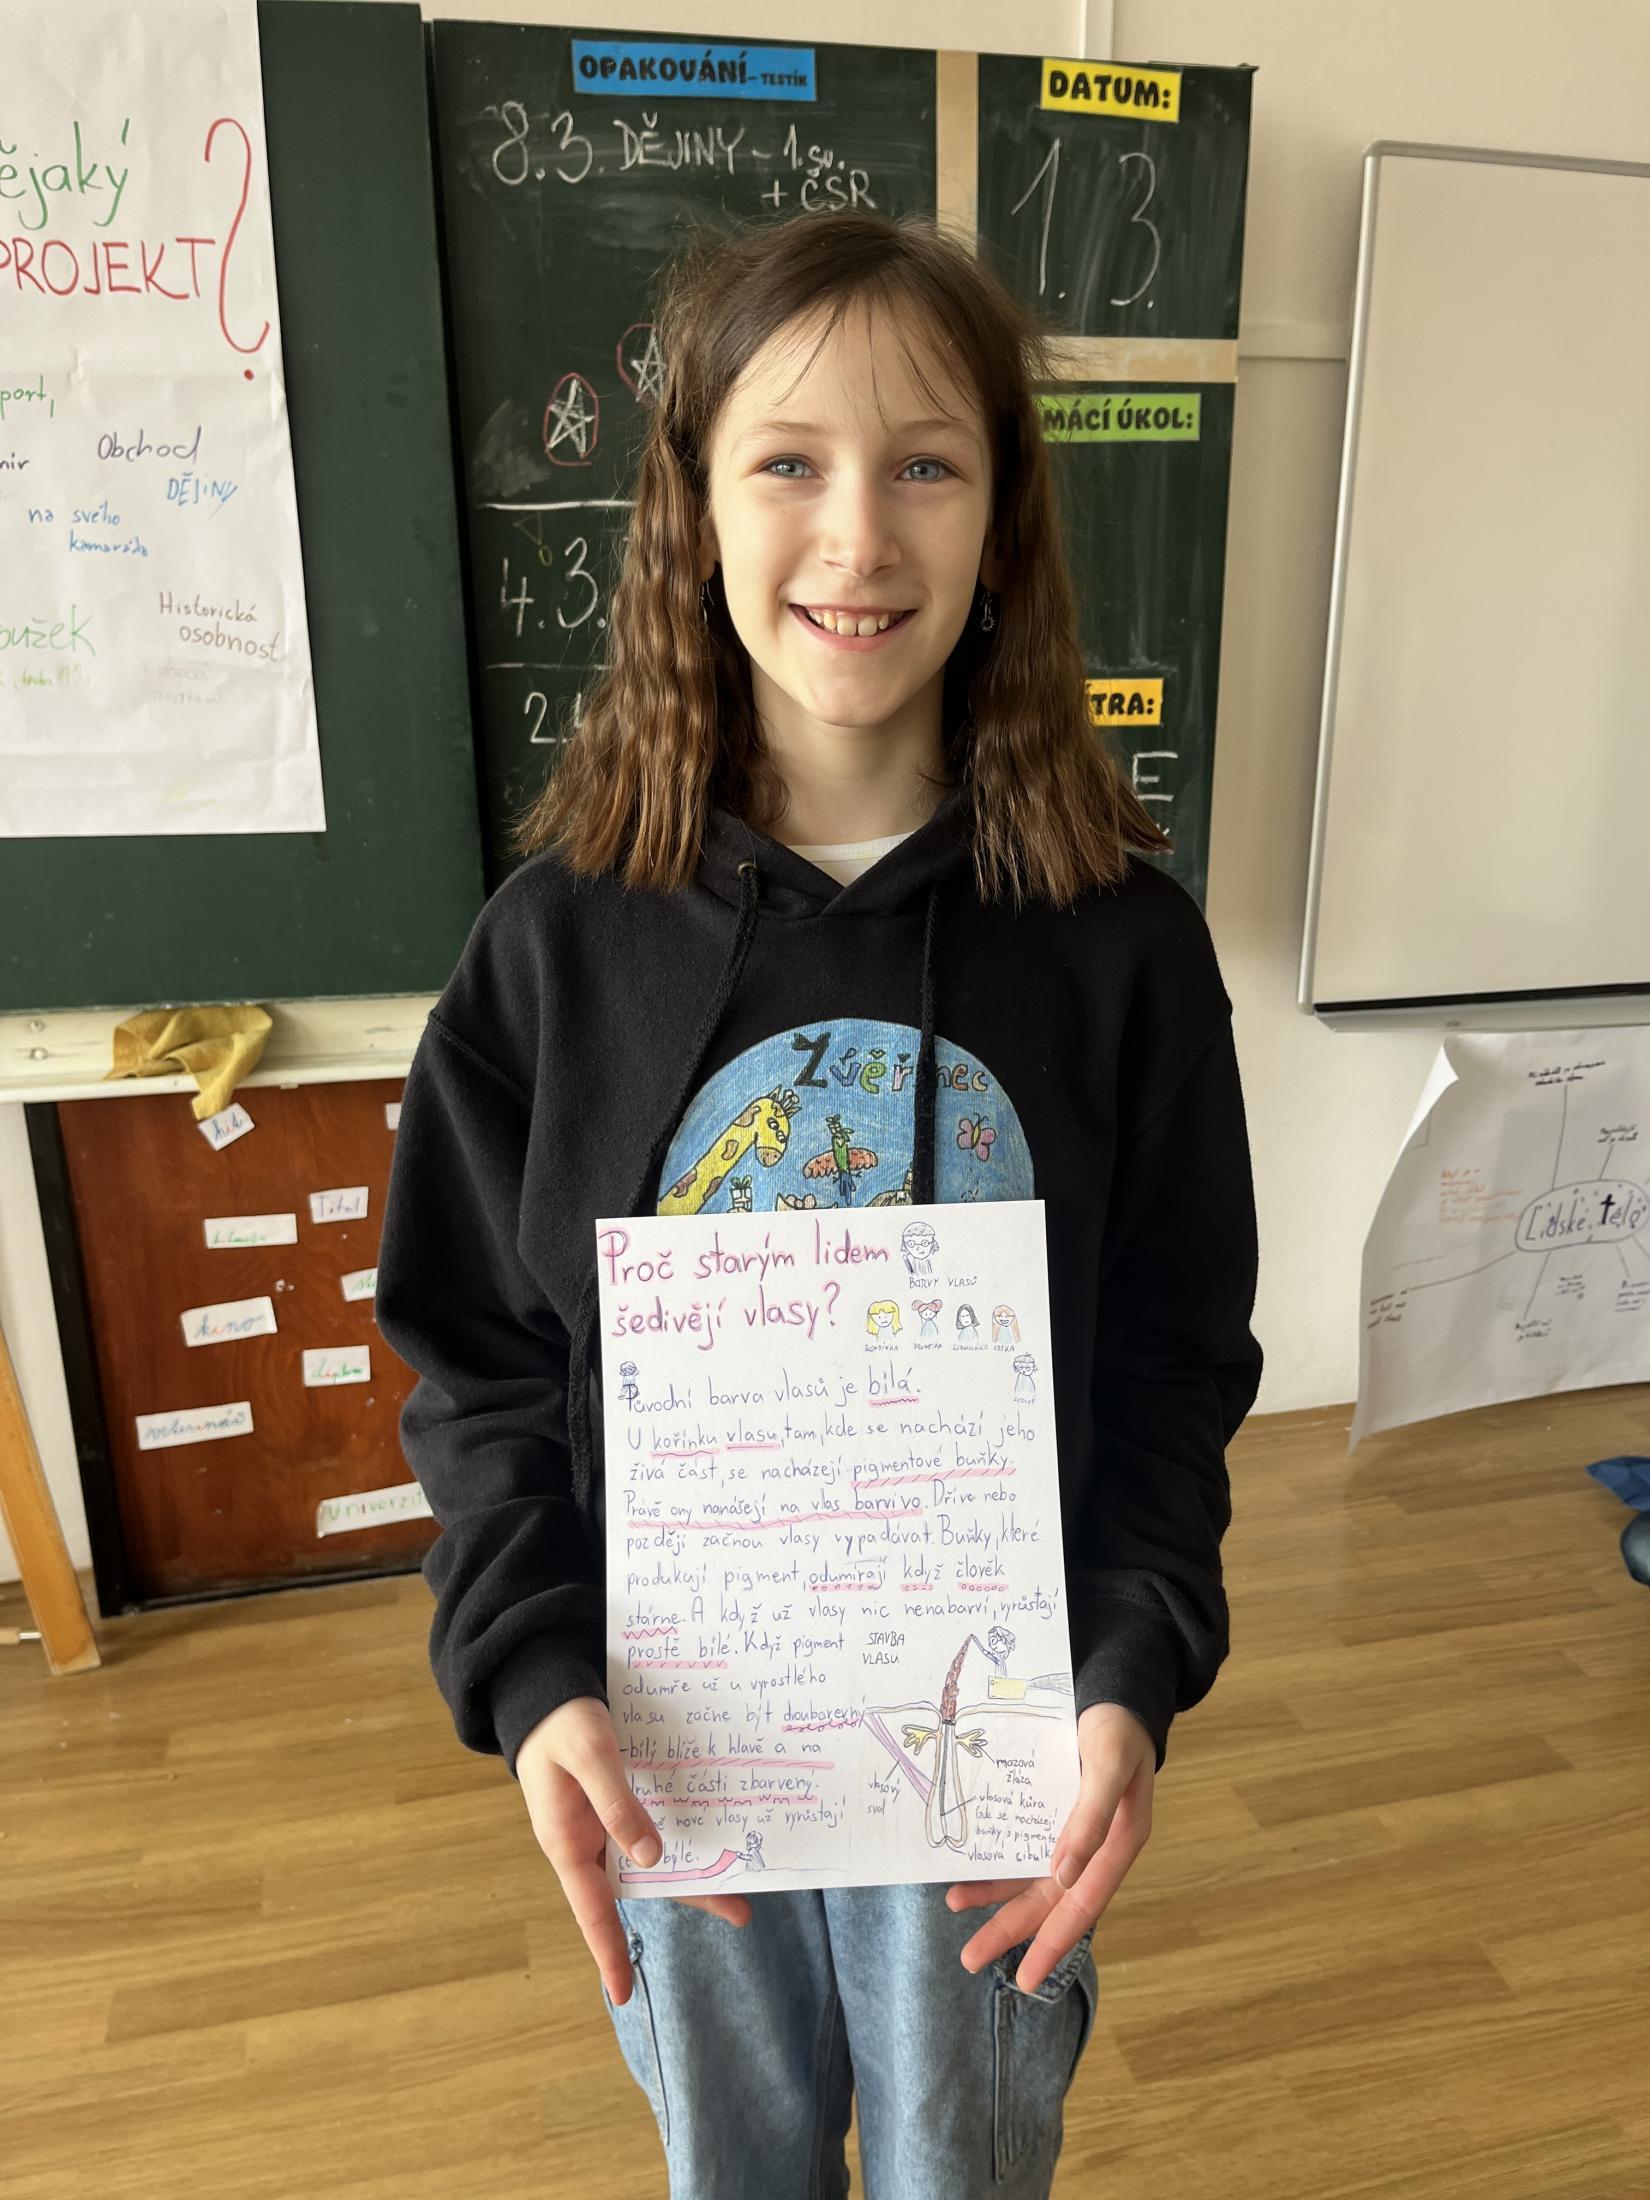 ějaký
PROJEKT?
port,
Obchod
DĚJINY
na svého
kamaráda
Historická
osobnost
OPAKOVÁNÍ - TESTÍK
8.3. DĚJINY - 1. sv.
+ ČSR
4.3.
2.
DATUM:
1. 3.
MÁCÍ ÚKOL:
ÍTRA:
E
Zvěřinec
Proč starým lidem
šedivějí vlasy?
BARVY VLASŮ
Původní barva vlasů je bílá.
U kořínku vlasu, tam, kde se nachází jeho
živá část, se nacházejí pigmentové buňky.
Právě ony nanášejí na vlas barvivo. Dříve nebo
později začnou vlasy vypadávat. Buňky, které
produkují pigment, odumírají když člověk
stárne. A když už vlasy nic nenabarví, vyrůstají
prostě bílé. Když pigment
odumře už u vyrostlého
vlasu začne být dvoubarevný
-bílý blíže k hlavě a na
druhé části zbarvený.
nové vlasy už vyrůstají
býlé.
STAVBA
VLASU
mazová
žláza
vlasový
sval
vlasová kůra
(kde se nacházejí
buňky s pigmente
vlasová cibulk
kino
Univerzit
Lidské tělo